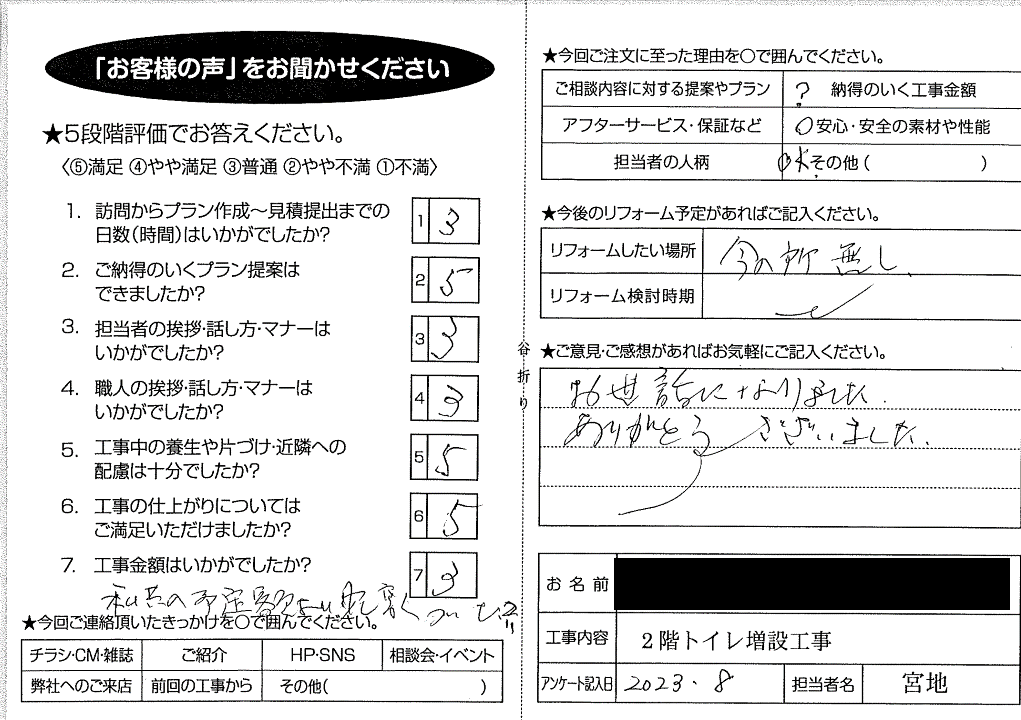 「お客様の声」をお聞かせください
★5段階評価でお答えください。
〈⑤満足 ④やや満足 ③普通 ②やや不満 ①不満〉
1. 訪問からプラン作成～見積提出までの
日数(時間)はいかがでしたか?
1 3
2. ご納得のいくプラン提案は
できましたか?
2 5
3. 担当者の挨拶・話し方・マナーは
いかがでしたか?
3 3
4. 職人の挨拶・話し方・マナーは
いかがでしたか?
4 3
5. 工事中の養生や片づけ・近隣への
配慮は十分でしたか?
5 5
6. 工事の仕上がりについては
ご満足いただけましたか?
6 5
7. 工事金額はいかがでしたか?
7 3
私共の予定額より
★今回ご連絡頂いたきっかけを○で囲んでください。
チラシ・CM・雑誌 ご紹介 HP・SNS 相談会・イベント
弊社へのご来店 前回の工事から その他( )
谷折り
★今回ご注文に至った理由を○で囲んでください。
ご相談内容に対する提案やプラン ? 納得のいく工事金額
アフターサービス・保証など ○安心・安全の素材や性能
担当者の人柄 その他( )
★今後のリフォーム予定があればご記入ください。
リフォームしたい場所 今の所無し、
リフォーム検討時期
★ご意見・ご感想があればお気軽にご記入ください。
お世話になりました.
ありがとうございました.
お名前
工事内容 2階トイレ増設工事
アンケート記入日 2023.8 担当者名 宮地